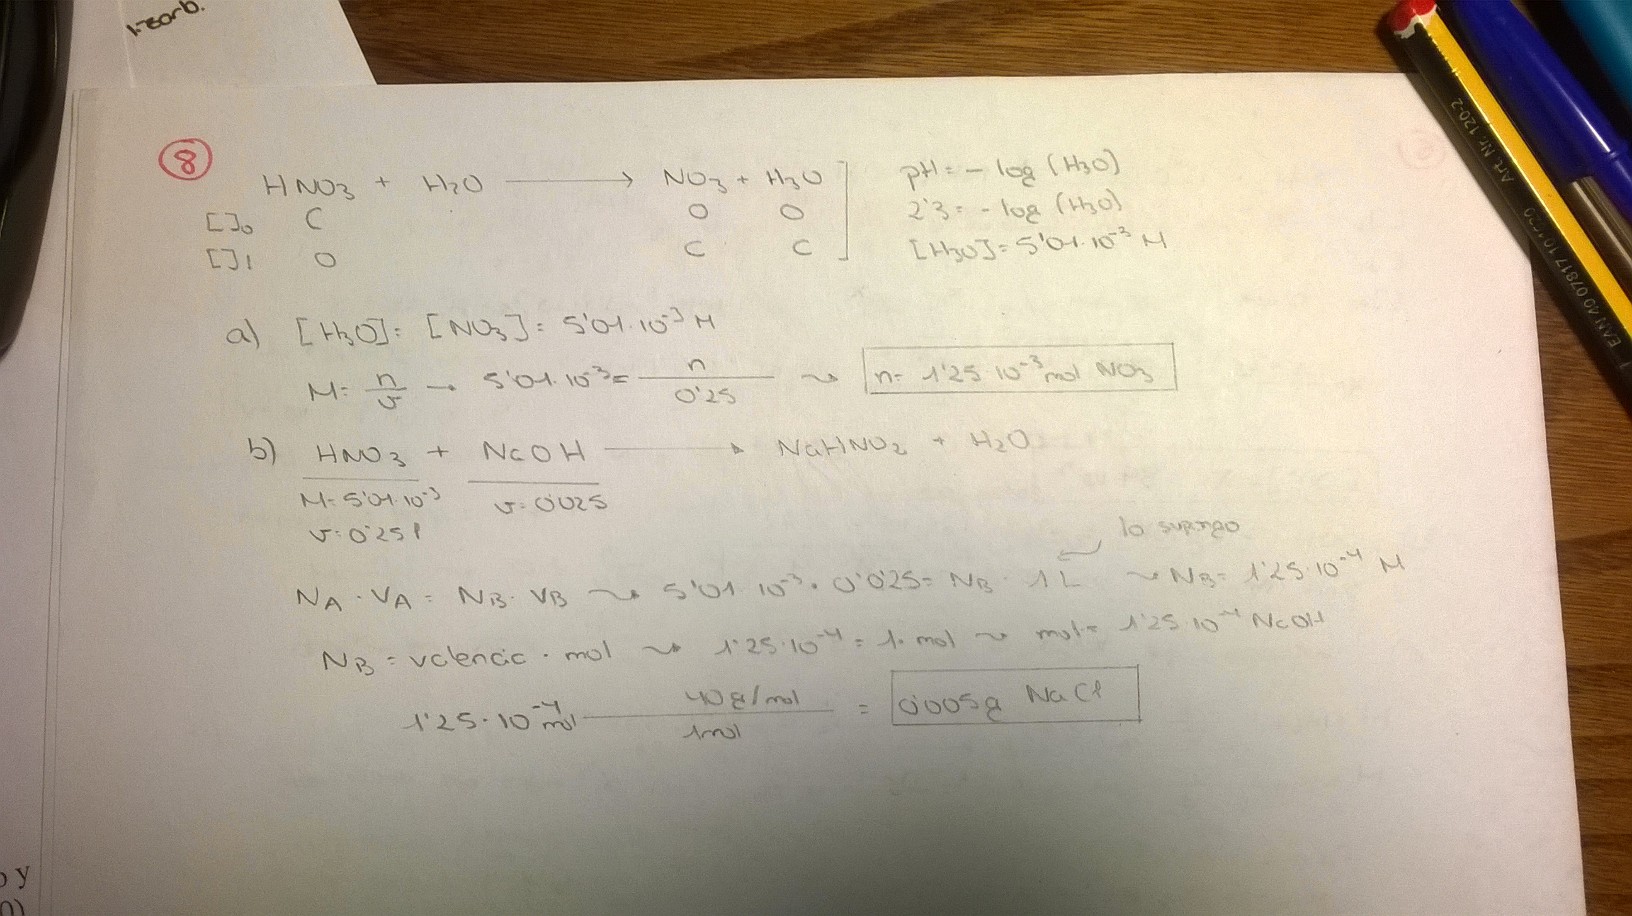 1-zorb.
8
HNO3 + H2O → NO3 + H3O
[]0 C O O
[]1 O C C
pH = - log (H3O)
2'3 = - log (H3O)
[H3O] = 5'01·10⁻³ M
a) [H3O] = [NO3] = 5'01·10⁻³ M
M = n/v → 5'01·10⁻³ = n/0'25 ⇝ n = 1'25 10⁻³ mol NO3
b) HNO3 + NaOH → NaHNO2 + H2O
M = 5'01·10⁻³ v = 0'025
v = 0'25 l
lo supongo
NA · VA = NB · VB ⇝ 5'01·10⁻³ · 0'025 = NB · 1 L ⇝ NB = 1'25·10⁻⁴ M
NB = valencia · mol ⇝ 1'25·10⁻⁴ = 1 · mol ⇝ mol = 1'25·10⁻⁴ NaOH
1'25·10⁻⁴ mol 40 g/mol / 1 mol = 0'005g NaCl
Art. Nr. 120-2
o y
0)